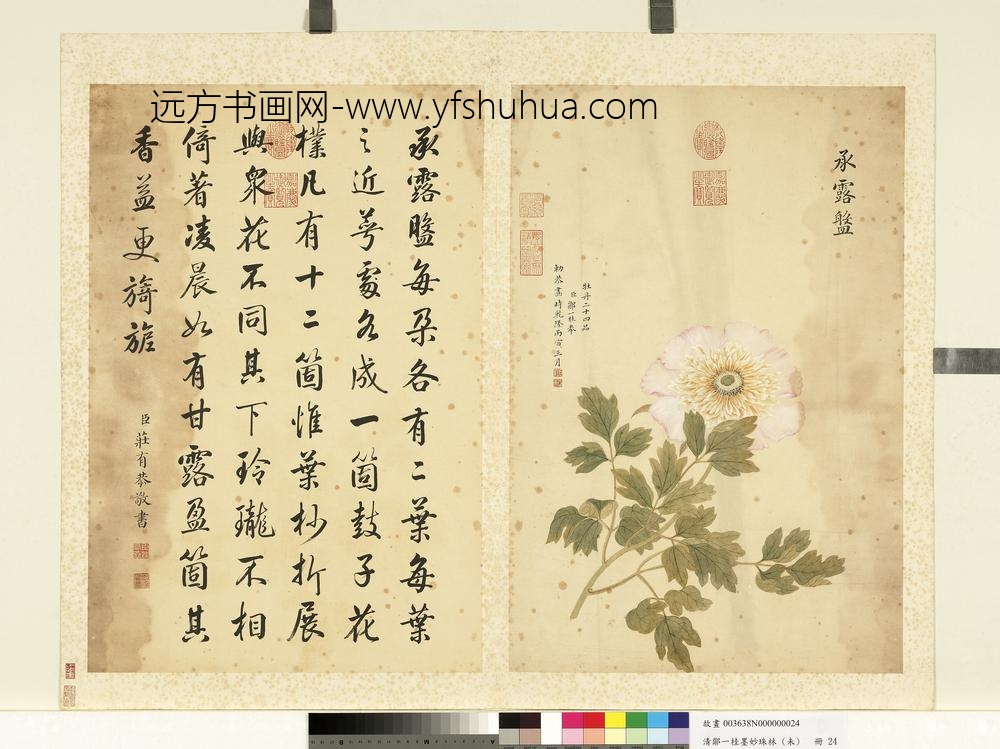 远方书画网-www.yfshuhua.com
承露盤
牡丹二十四品
臣鄒一桂奉
勅恭畫時乾隆丙寅正月
承露盤每朶各有二葉每葉
之近萼處各成一箇鼓子花
樸凡有十二箇惟葉杪折展
與衆花不同其下玲瓏不相
倚著凌晨如有甘露盈箇其
香益更旖旎
臣莊有恭敬書
故畫 003638N000000024
清鄒一桂墨妙珠林（未） 冊 24